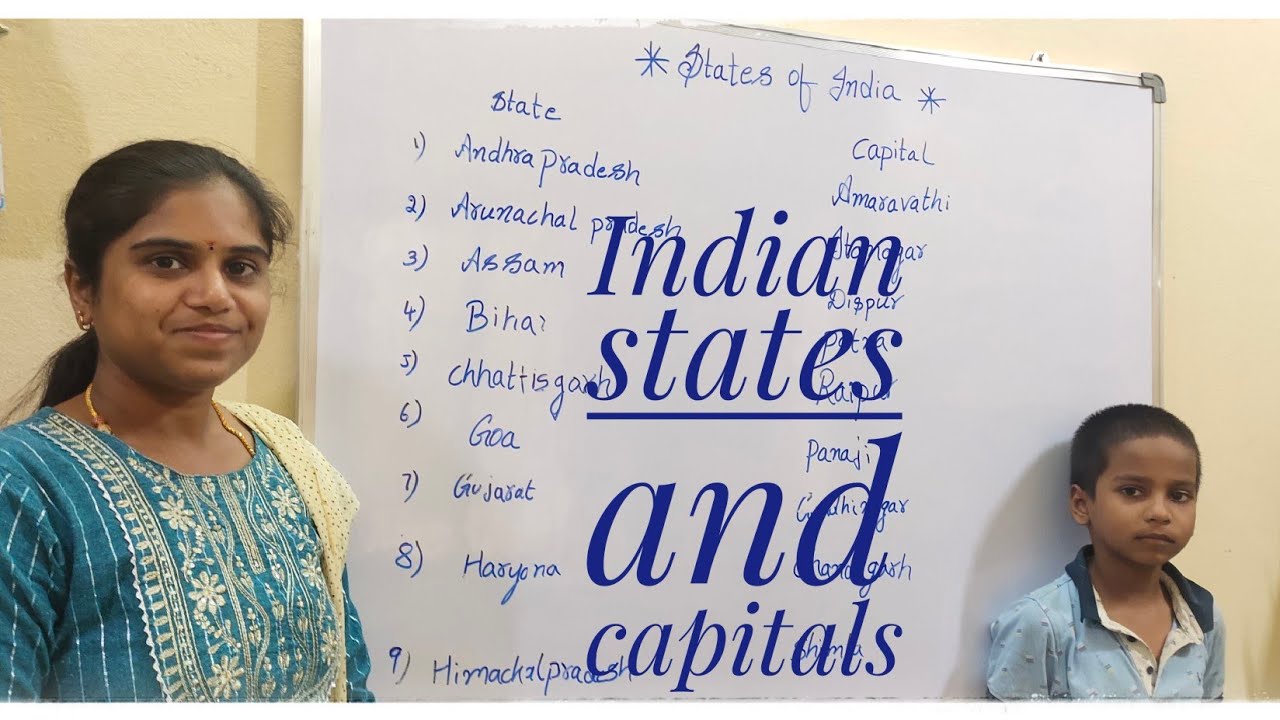 * States of India *
State Capital
1) Andhra pradesh Amaravathi
2) Arunachal pradesh Itanagar
3) Assam Dispur
4) Bihar Patna
5) Chhattisgarh Raipur
6) Goa Panaji
7) Gujarat Gandhinagar
8) Haryona Chandigarh
9) Himachal pradesh Shimla
Indian
states
and
capitals